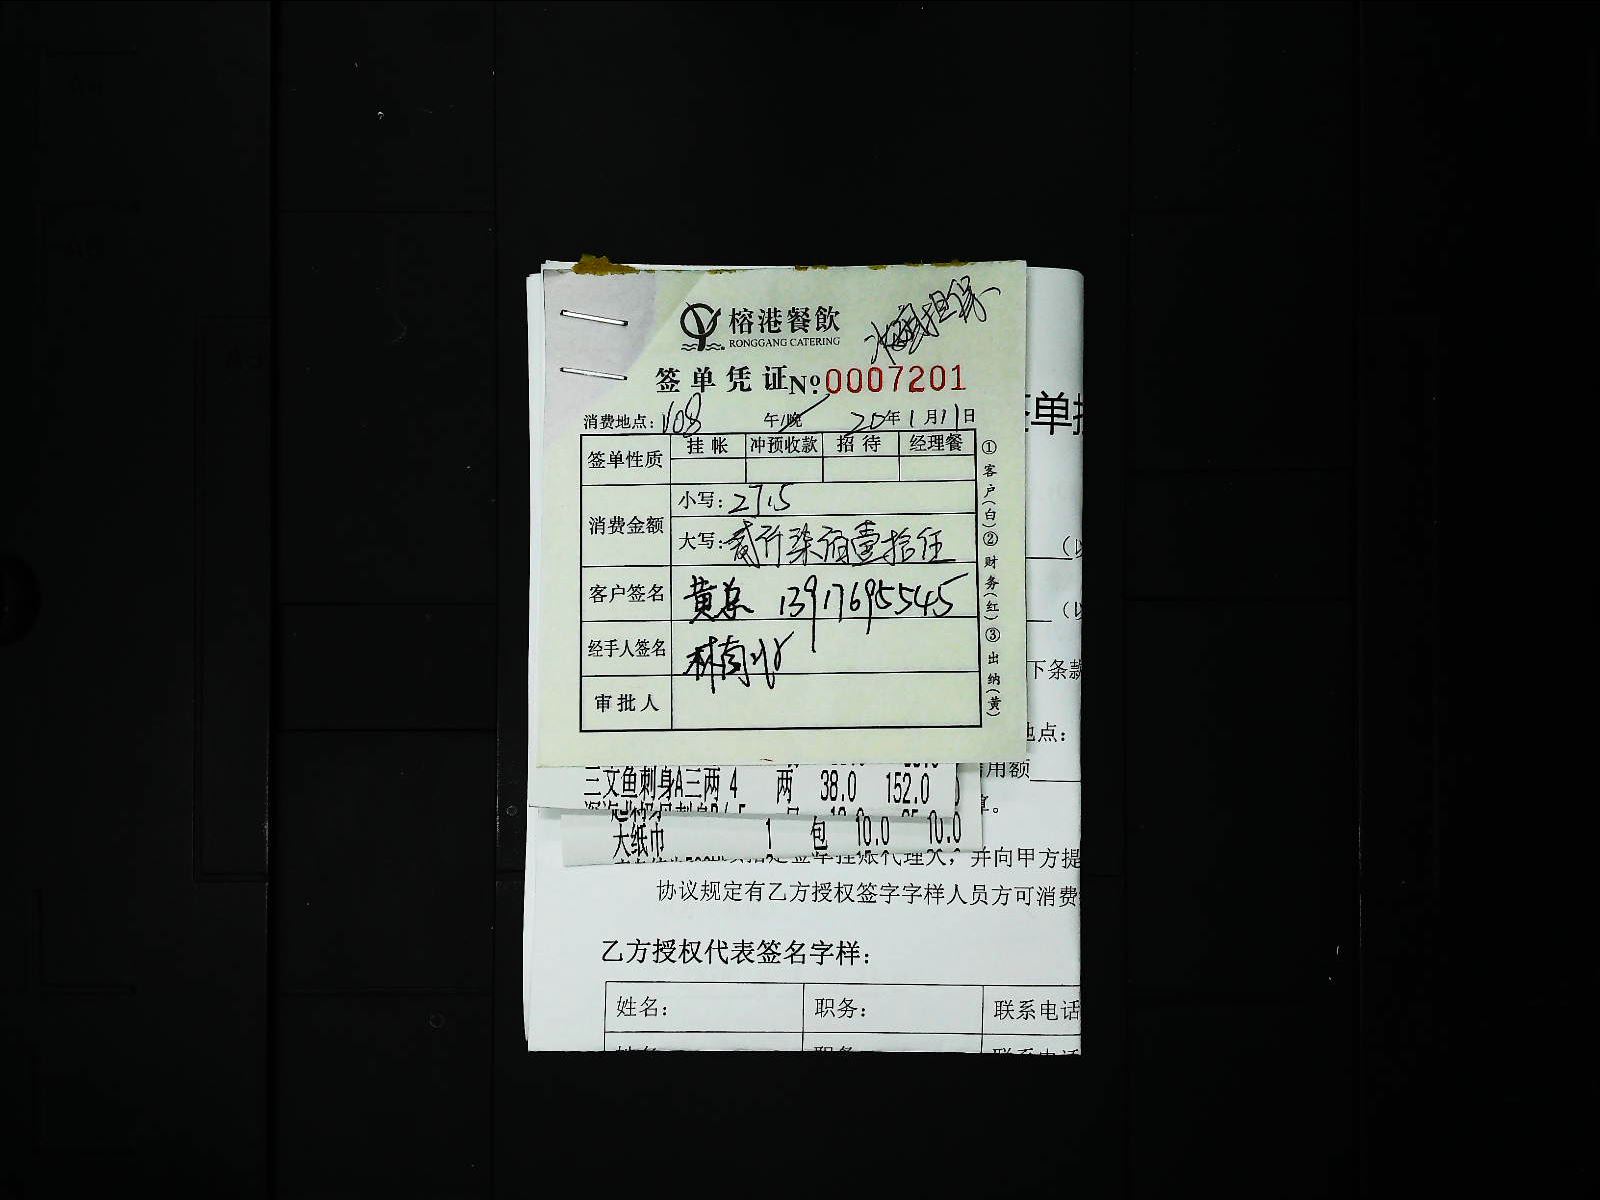 榕港餐飲
RONGGANG CATERING
担保
签单凭证 №:0007201
消费地点: V08 午/晚 20年1月11日
签单性质 挂帐 冲预收款 招待 经理餐
消费金额 小写: 2715
大写: 贰仟柒佰壹拾伍
客户签名 黄总 13917695545
经手人签名 林南
审批人
①客户(白)②财务(红)③出纳(黄)
单
(以
(以
下条款
地点:
用额
算。
三文鱼刺身A三两 4 两 38.0 152.0
大纸巾 1 包 10.0 10.0
签单挂账代理人,并向甲方提
协议规定有乙方授权签字字样人员方可消费
乙方授权代表签名字样:
姓名: 职务: 联系电话